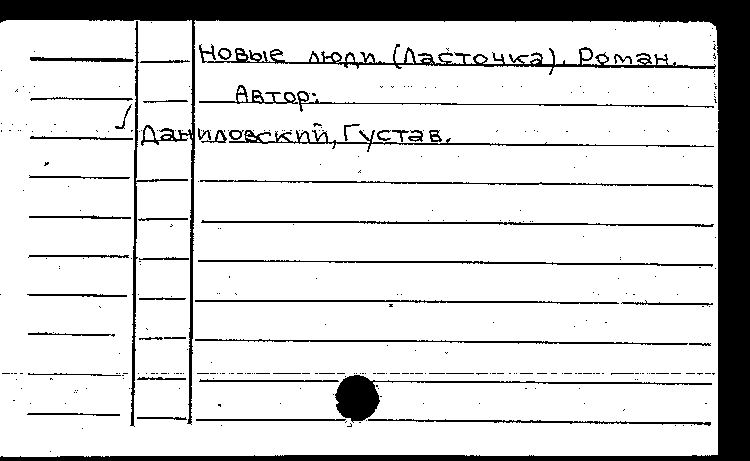 Новые люди. (Ласточка). Роман.
Автор:
Даниловский, Густав.